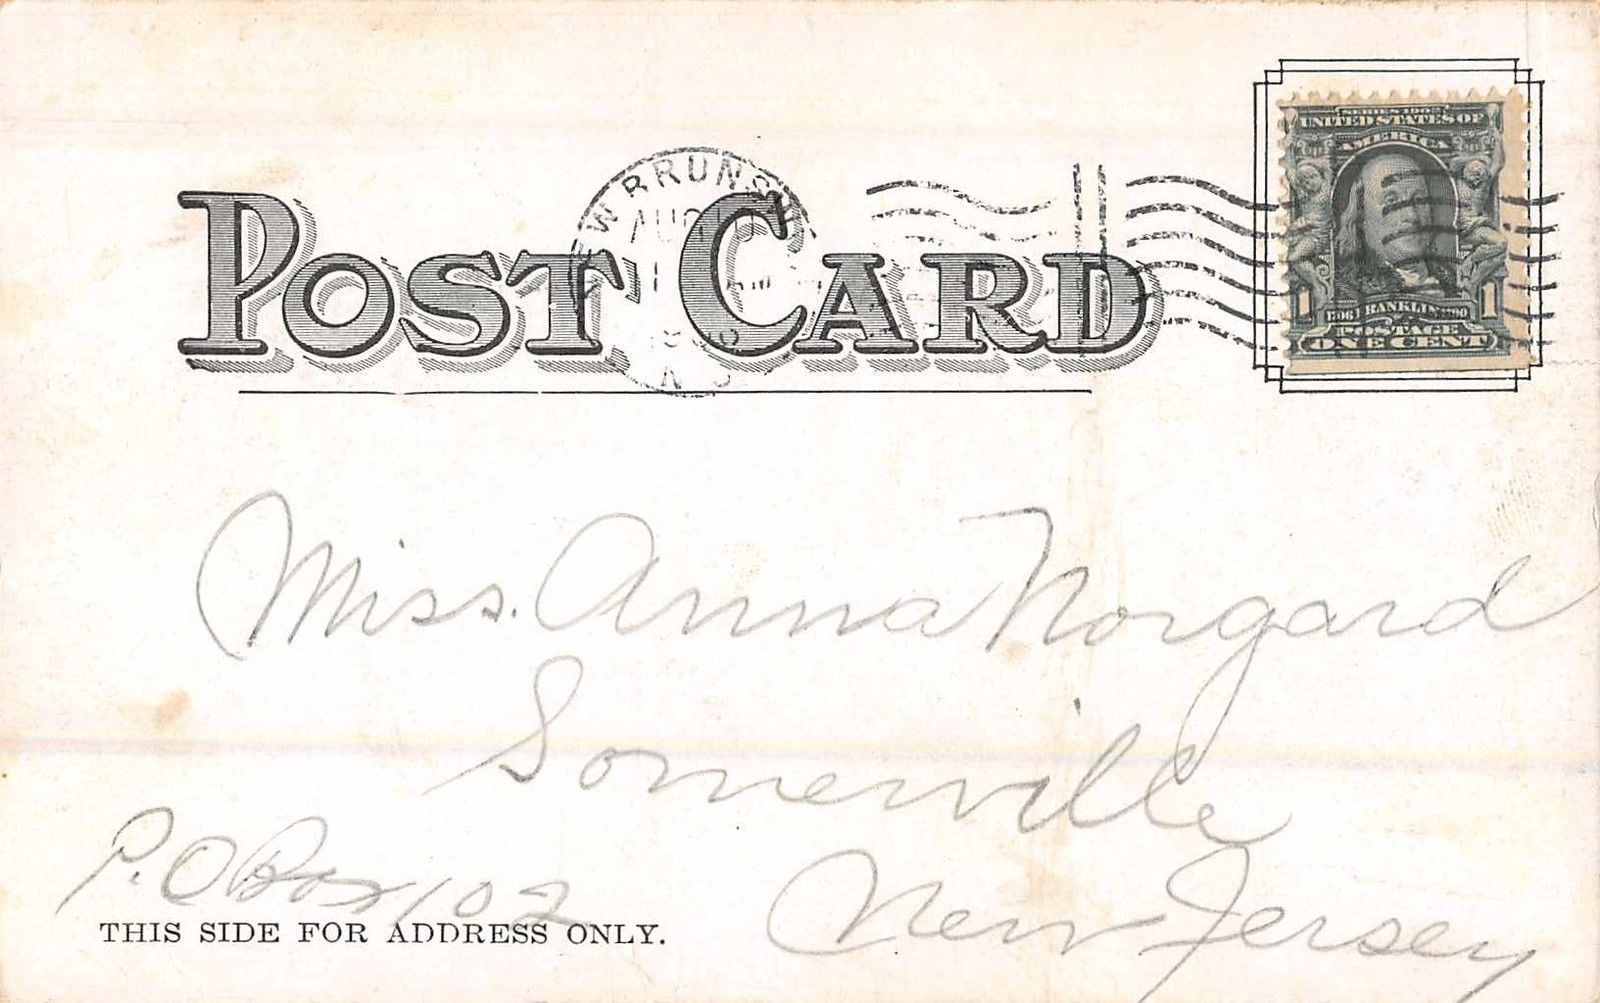 POST CARD
NEW BRUNSW
AUG
AM
N J
SERIES 1902
UNITED STATES OF
AMERICA
1 1
1706 FRANKLIN 1790
POSTAGE
ONE CENT
Miss. Anna Norgard
Somerville
P.O Box 102
New Jersey
THIS SIDE FOR ADDRESS ONLY.